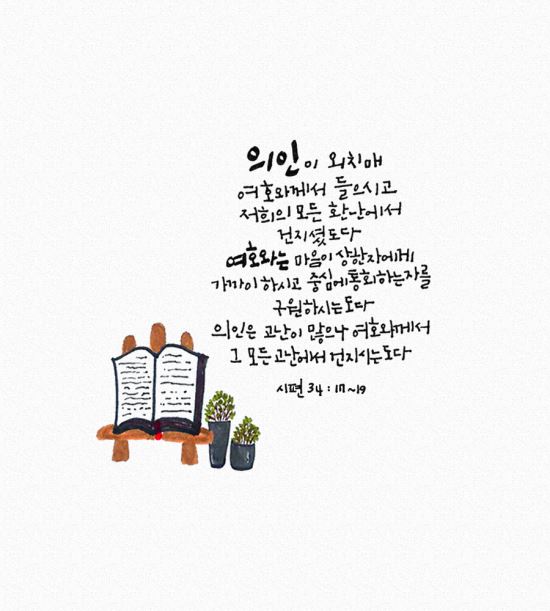 의인이 외치매
여호와께서 들으시고
저희의 모든 환난에서
건지셨도다
여호와는 마음이 상한자에게
가까이 하시고 중심에통회하는자를
구원하시는도다
의인은 고난이 많으나 여호와께서
그 모든고난에서 건지시는도다
시편 34 : 17~19